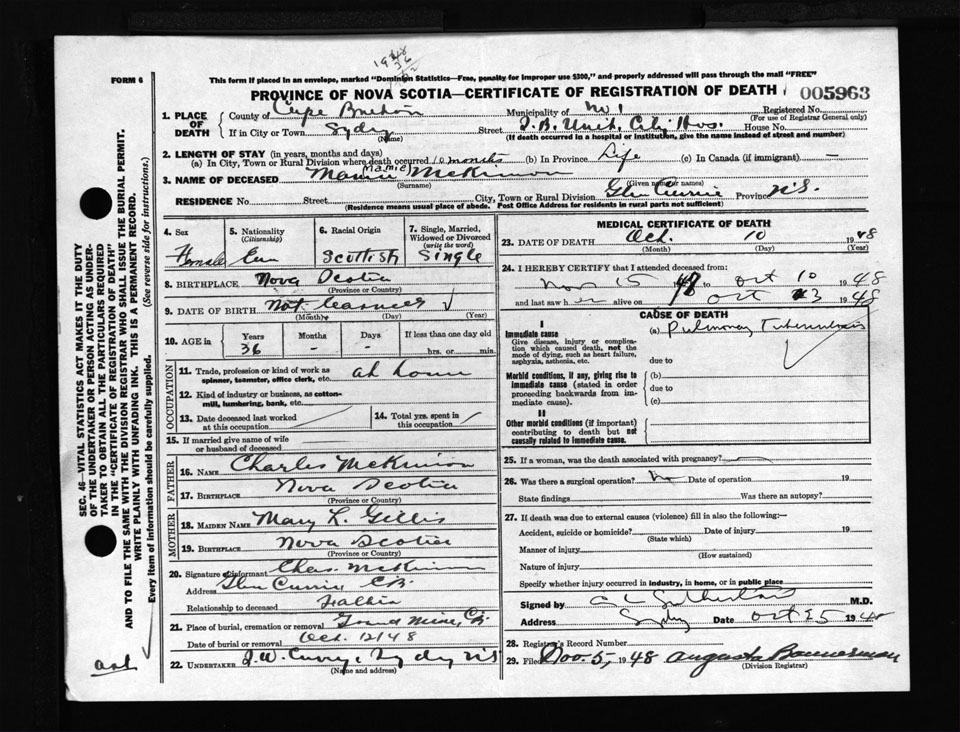 1948
36
12
FORM 6
This form if placed in an envelope, marked "Dominion Statistics—Free, penalty for improper use $300," and properly addressed will pass through the mail "FREE"
PROVINCE OF NOVA SCOTIA—CERTIFICATE OF REGISTRATION OF DEATH 005963
1. PLACE OF DEATH County of Cape Breton Municipality of No 1 Registered No. (For use of Registrar General only)
If in City or Town Sydney (Name) Street T.B. Unit, City Hos. House No.
(If death occurred in a hospital or institution, give the name instead of street and number)
2. LENGTH OF STAY (in years, months and days)
(a) In City, Town or Rural Division where death occurred 10 months (b) In Province Life (c) In Canada (if immigrant) —
3. NAME OF DECEASED Mamie Mamie McKinnon
(Surname) (Given name or names)
RESIDENCE No. Street City, Town or Rural Division Glen Currie Province N.S.
(Residence means usual place of abode. Post Office Address for residents in rural parts not sufficient)
4. Sex Female
5. Nationality (Citizenship) Can
6. Racial Origin Scottish
7. Single, Married, Widowed or Divorced (write the word) Single
8. BIRTHPLACE Nova Scotia
(Province or Country)
9. DATE OF BIRTH Not learned
(Month) (Day) (Year)
10. AGE in Years 36 Months - Days - If less than one day old hrs. or min.
OCCUPATION
11. Trade, profession or kind of work as spinner, teamster, office clerk, etc. at home
12. Kind of industry or business, as cotton-mill, lumbering, bank, etc.
13. Date deceased last worked at this occupation
14. Total yrs. spent in this occupation
15. If married give name of wife or husband of deceased
FATHER
16. NAME Charles McKinnon
17. BIRTHPLACE Nova Scotia
(Province or Country)
MOTHER
18. MAIDEN NAME Mary L. Gillis
19. BIRTHPLACE Nova Scotia
(Province or Country)
20. Signature of informant Chas. McKinnon
Address Glen Currie C.B.
Relationship to deceased Father
21. Place of burial, cremation or removal Grand Mira, C.B.
Date of burial or removal Oct. 12/48
22. UNDERTAKER J.W. Curry, Sydney N.S.
(Name and address)
MEDICAL CERTIFICATE OF DEATH
23. DATE OF DEATH Oct. 10 1948
(Month) (Day) (Year)
24. I HEREBY CERTIFY that I attended deceased from:
Nov 15 1947 to Oct 10 1948
and last saw h er alive on Oct 3 1948
CAUSE OF DEATH
I
Immediate cause
Give disease, injury or complication which caused death, not the mode of dying, such as heart failure, asphyxia, asthenia, etc.
(a) Pulmonary Tuberculosis
due to
Morbid conditions, if any, giving rise to immediate cause (stated in order proceeding backwards from immediate cause).
(b)
due to
(c)
II
Other morbid conditions (if important) contributing to death but not causally related to immediate cause.
25. If a woman, was the death associated with pregnancy?
26. Was there a surgical operation? No Date of operation 19
State findings Was there an autopsy?
27. If death was due to external causes (violence) fill in also the following:—
Accident, suicide or homicide? Date of injury 19
(State which)
Manner of injury
(How sustained)
Nature of injury
Specify whether injury occurred in industry, in home, or in public place
Signed by M.D.
Address Sydney Date Oct 25 1948
28. Registrar's Record Number
29. Filed Nov. 5, 1948 Augusta Bannerman
(Division Registrar)
SEC. 46—VITAL STATISTICS ACT MAKES IT THE DUTY
OF THE UNDERTAKER OR PERSON ACTING AS UNDER-
TAKER TO OBTAIN ALL THE PARTICULARS REQUIRED
IN THE "CERTIFICATE OF REGISTRATION OF DEATH"
AND TO FILE THE SAME WITH THE DIVISION REGISTRAR WHO SHALL ISSUE THE BURIAL PERMIT.
WRITE PLAINLY WITH UNFADING INK. THIS IS A PERMANENT RECORD.
Every item of information should be carefully supplied. (See reverse side for instructions.)